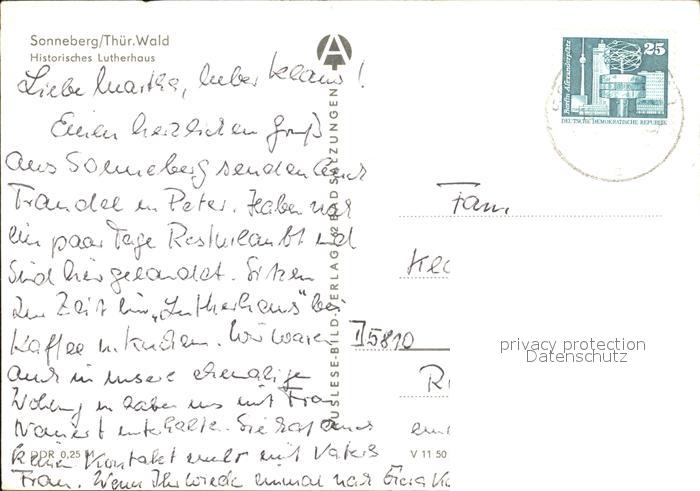 Sonneberg/Thür.Wald
Historisches Lutherhaus
Liebe Martha, lieber Klaus!
Einen herzlichen Gruß
aus Sonneberg senden Euch
Traudel u. Peter. Haben noch
ein paar Tage Resturlaubt und
sind hier gelandet. Sitzen
zur Zeit im „Lutherhaus" bei
Kaffee u. Kuchen. Wir waren
auch in unsere ehemalige
Wohung u. haben uns mit Frau
unterhalten. Sie hat auch
keinen Kontakt mehr mit Vatis
Frau. Wenn Ihr wieder einmal nach
DDR 0,25 M
V 11 50
AUSLESE-BILD-VERLAG 62 BAD SALZUNGEN
25
Berlin Alexanderplatz
DEUTSCHE DEMOKRATISCHE REPUBLIK
Fam.
5810
privacy protection
Datenschutz